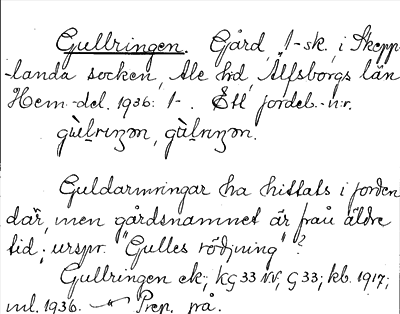 Gullringen. Gård, 1-sk, i Skepp-
-landa socken, Ale hd, Älfsborgs län
Hem.-del. 1936: 1-. Ett jordeb.-n:r.
Guldarmringar ha hittats i jorden
där, men gårdsnamnet är från äldre
tid; urspr. "Gulles rödjning"?
Gullringen ek; KG 33 NV; G 33; kb. 1917;
ml. 1936. Prep. på.